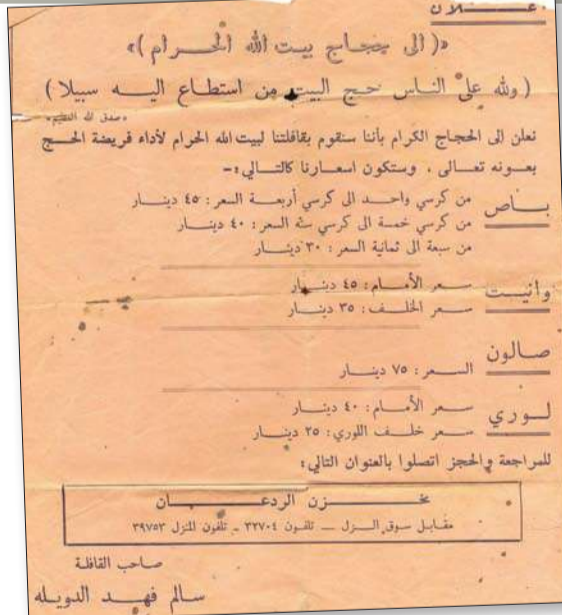 إعـــــلان
«(الى حجاج بيت الله الحرام)»
(ولله على الناس حج البيت من استطاع اليه سبيلا)
«صدق الله العظيم»
نعلن الى الحجاج الكرام بأننا سنقوم بقافلتنا لبيت الله الحرام لأداء فريضة الحج
بعونه تعالى . وستكون اسعارنا كالتالي :-
باص من كرسي واحد الى كرسي أربعة السعر : ٤٥ دينار
من كرسي خمسة الى كرسي ستة السعر : ٤٠ دينار
من سبعة الى ثمانية السعر : ٣٠ دينار
وانيت سعر الأمام : ٤٥ دينار
سعر الخلف : ٣٥ دينار
صالون السعر : ٧٥ دينار
لوري سعر الأمام : ٤٠ دينار
سعر خلف اللوري : ٢٥ دينار
للمراجعة والحجز اتصلوا بالعنوان التالي :
مخزن الردعان
مقابل سوق الزل — تلفون ٣٢٧٠٤ - تلفون المنزل ٣٩٧٥٣
صاحب القافلة
سالم فهد الدويله